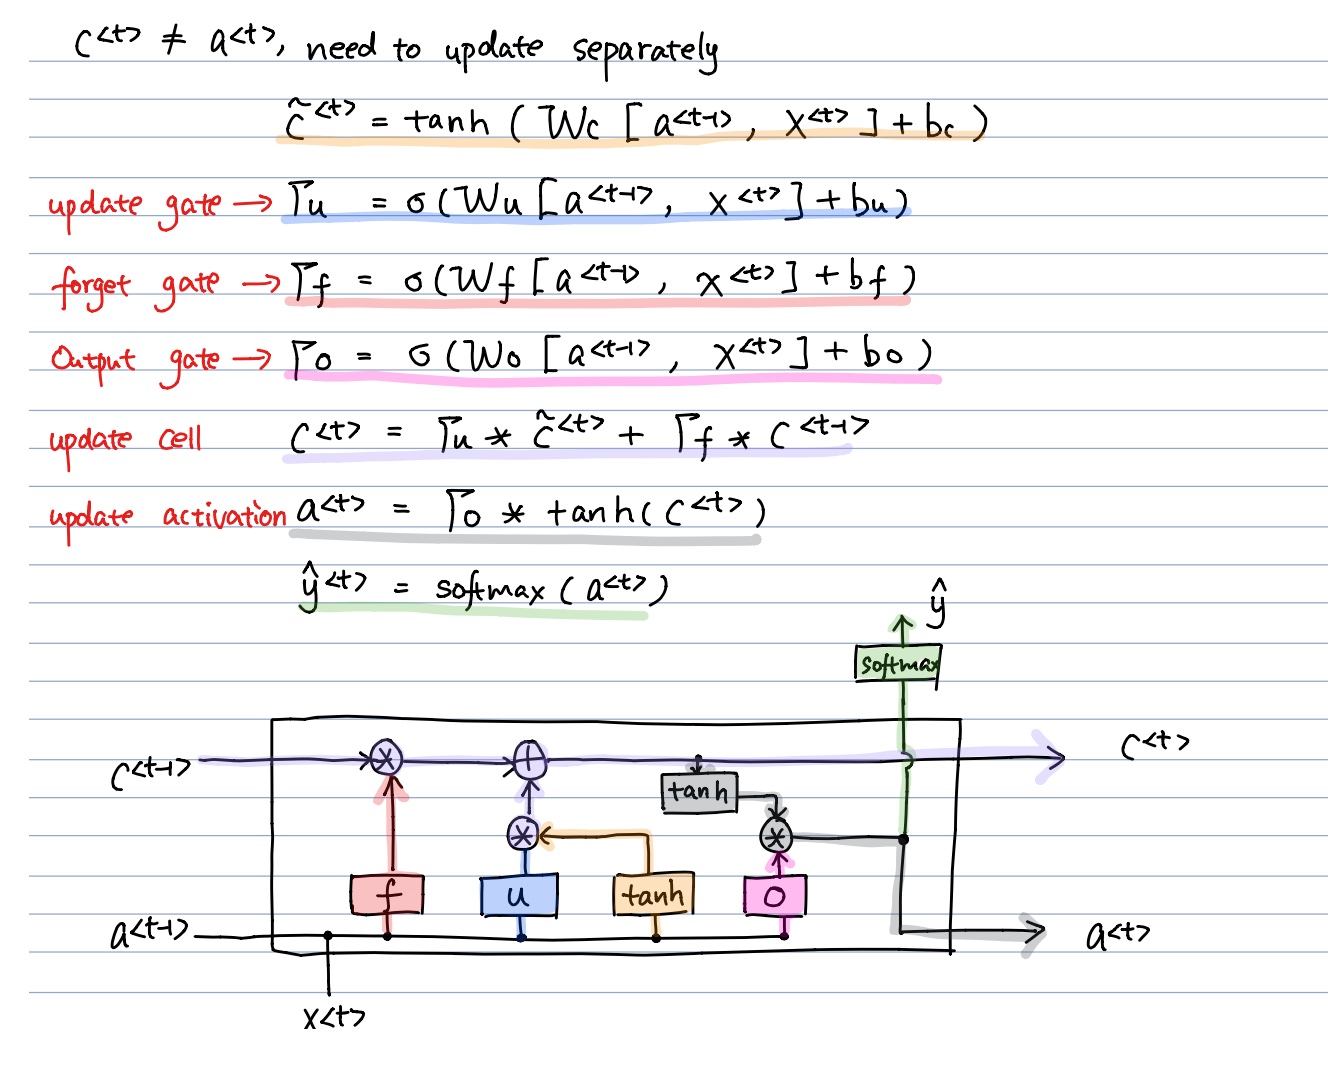 c<t> ≠ a<t>, need to update separately
c̃<t> = tanh ( Wc [ a<t-1> , x<t> ] + bc )
update gate → Γu = σ( Wu [ a<t-1> , x<t> ] + bu )
forget gate → Γf = σ( Wf [ a<t-1> , x<t> ] + bf )
Output gate → Γo = σ( Wo [ a<t-1> , x<t> ] + bo )
update cell c<t> = Γu * c̃<t> + Γf * c<t-1>
update activation a<t> = Γo * tanh( c<t> )
ŷ<t> = softmax ( a<t> )
ŷ
softmax
c<t-1> * + c<t>
tanh
* *
f u tanh o
a<t-1> a<t>
x<t>